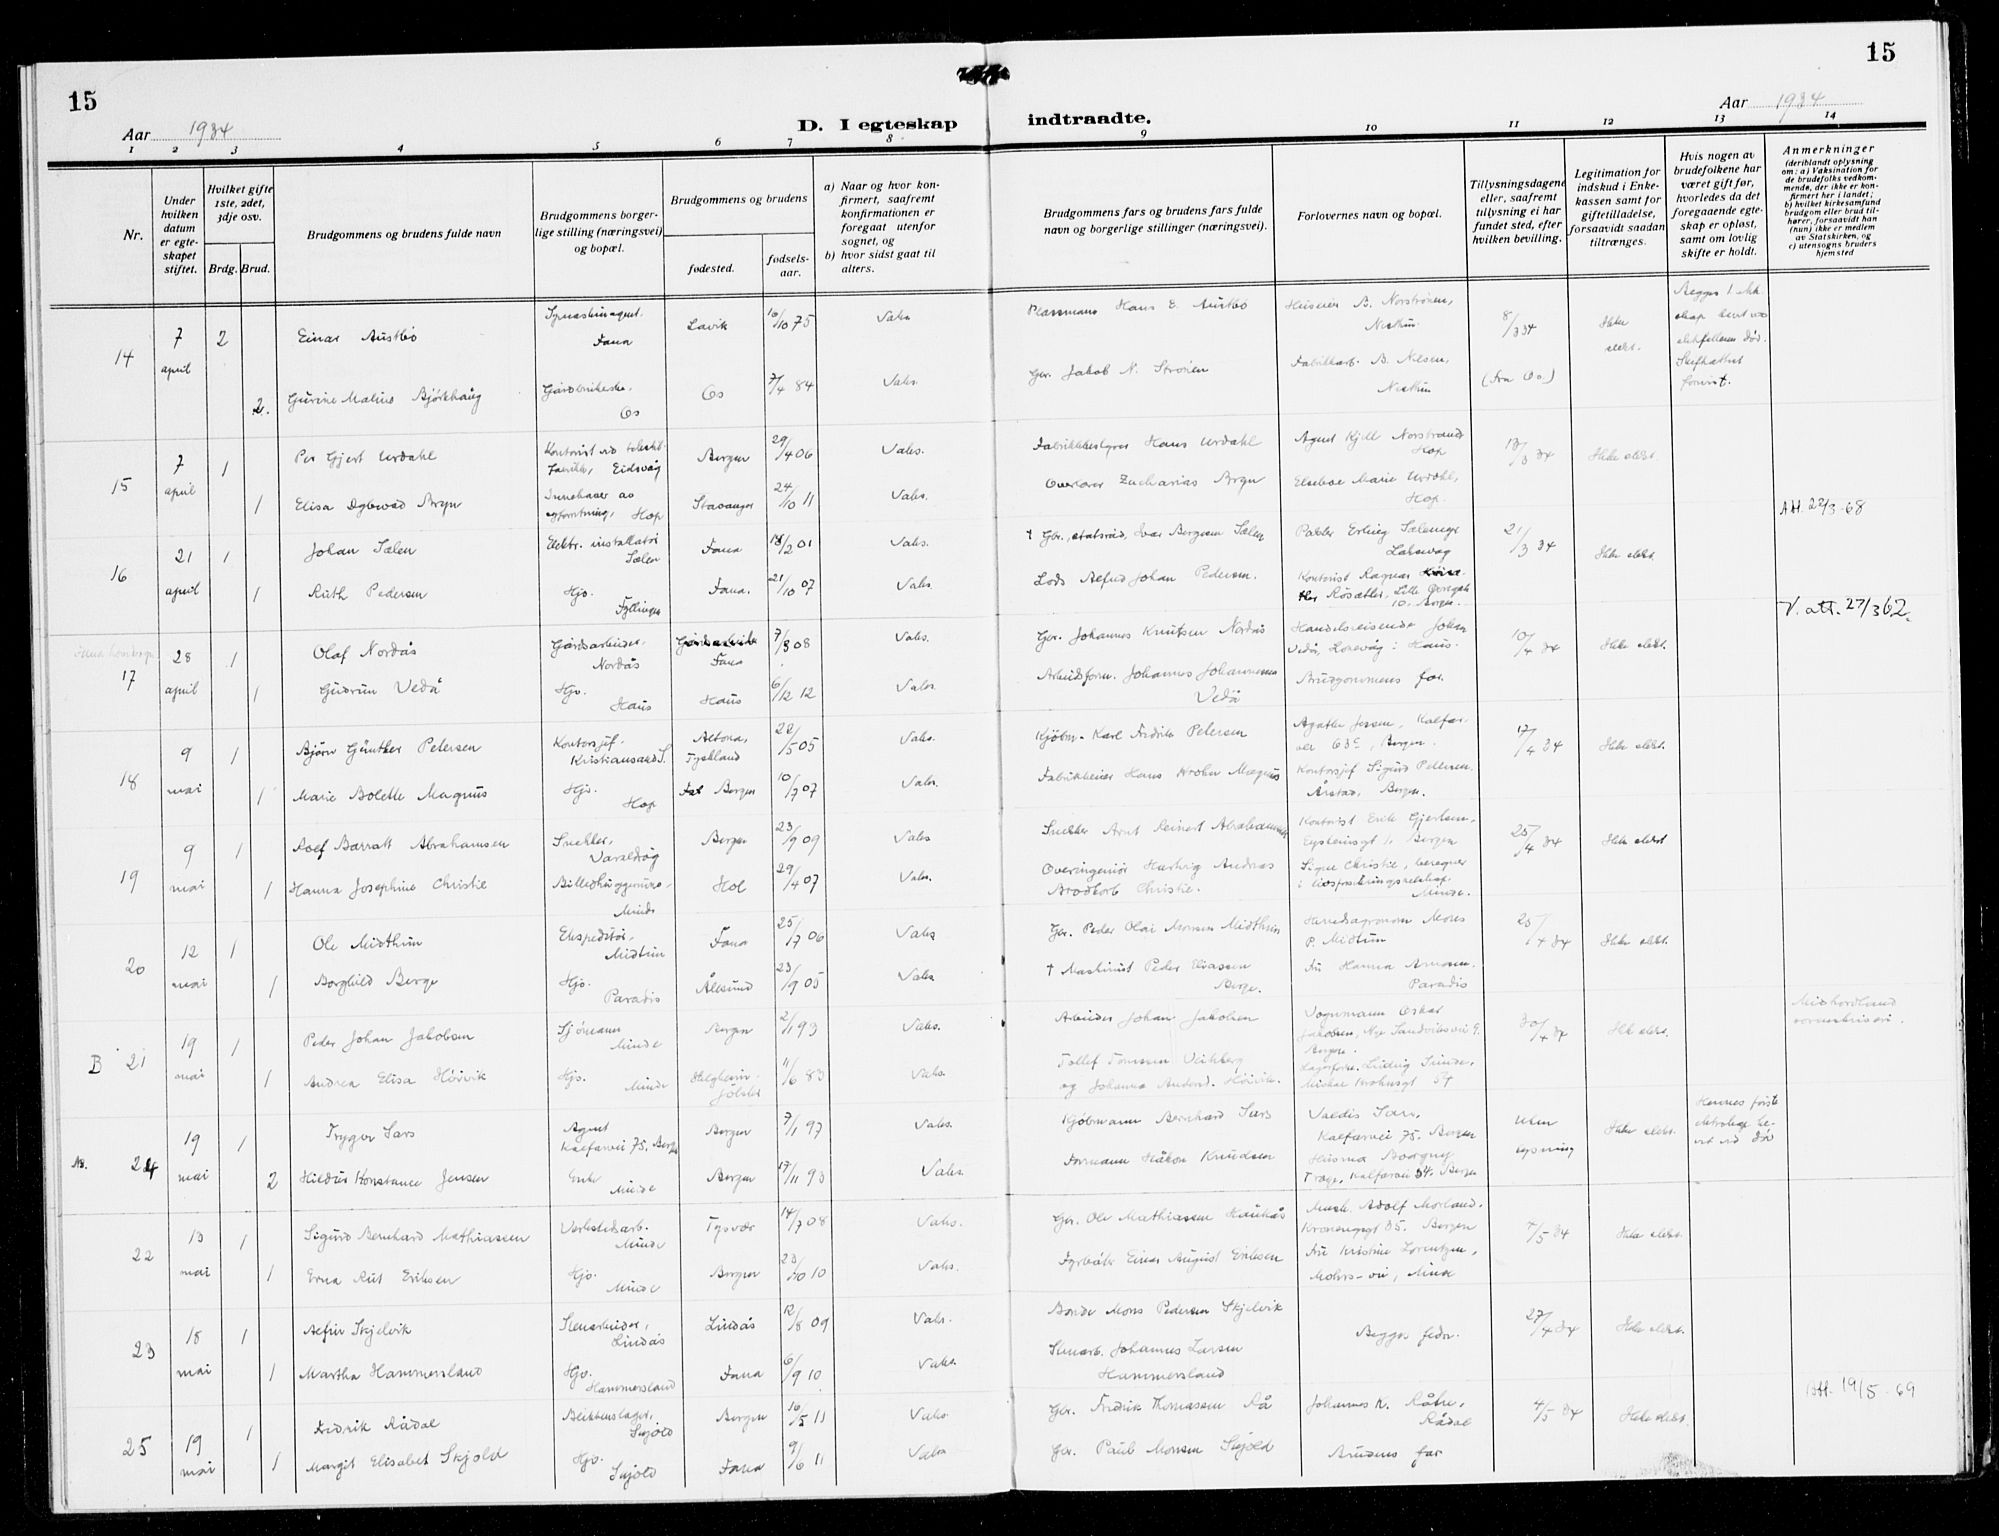 15
15
Aar 1934
D. I egteskap indtraadte.
Aar 1934
1 2 3 4 5 6 7 8 9 10 11 12 13 14
Nr.
Under hvilken datum er egteskapet stiftet.
Hvilket gifte 1ste, 2det, 3dje osv.
Brdg. Brud.
Brudgommens og brudens fulde navn
Brudgommens borgerlige stilling (næringsvei) og bopæl.
Brudgommens og brudens
fødested.
fødselsaar.
a) Naar og hvor konfirmert, saafremt konfirmationen er foregaat utenfor sognet, og
b) hvor sidst gaat til alters.
Brudgommens fars og brudens fars fulde navn og borgerlige stillinger (næringsvei).
Forlovernes navn og bopæl.
Tillysningsdagene eller, saafremt tillysning ei har fundet sted, efter hvilken bevilling.
Legitimation for indskud i Enkekassen samt for giftetilladelse, forsaavidt saadan tiltrænges.
Hvis nogen av brudefolkene har været gift før, hvorledes da det foregaaende egteskap er opløst, samt om lovlig skifte er holdt.
Anmerkninger
(deriblandt oplysning om: a) Vaksination for de brudefolks vedkommende, der ikke er konfirmert her i landet; b) hvilket kirkesamfund brudgom eller brud tilhører, forsaavidt han (hun) ikke er medlem av Statskirken, og c) utensogns bruders hjemsted
14 7 april 2 Einar Austbø Fana Lavik 16/10 75 Vaks. Hans E. Austbø B. Norstrønen, 8/3 34 Ikke
2. Gurine Malene Bjørkhaug Os Os 7/4 84 Vaks. Gbr. Jakob N. Strønen B. Nilsen, (fra Os.) elekt.
15 7 april 1 Per Gjert Urdahl Kontorist ved Eidsvåg Bergen 29/4 06 Vaks. Hans Urdahl Agent Kjell Norstrand Hop 13/3 34 Ikke elekt.
1 Elisa Bryn Innehaver av Hop Stavanger 24/10 11 Vaks. Zacharias Bryn Marie Urdahl, Hop. Att. 22/3-68
16 21 april 1 Johan Sælen Elektr. installatør Sælen Fana 18/2 01 Vaks. † Gbr., statsråd, Ivar Bergesen Sælen Erling Sælensge Laksevåg 21/3 34 Ikke elekt.
1 Ruth Pedersen Hjv. Fyllingen Fana. 21/10 07 Vaks. Lods Alfred Johan Pedersen. Kontorist Ragnar Røsæther, Lille Øvregate 10. Bergen. V. att. 27/3 62.
17 28 april 1 Olaf Nordås Gårdsarbeider, Nordås Fana 7/3 08 Vaks. Gbr. Johannes Knutsen Nordås Handelsreisende Johan Vedå, Haus. 10/4 34 Ikke elekt.
1 Gudrun Vedå Hjv. Haus Haus 6/12 12 Vaks. Arbeidsform. Johannes Johannesen Vedå Brudgommens far.
18 9 mai 1 Bjørn Günther Petersen Kontorsjef. Kristiansand S. Altona, Tyskland 22/5 05 Vaks. Kjøbm. Karl Fredrik Petersen Agathe Jessen, Kalfarvei 63c, Bergen. 17/4 34 Ikke elekt.
1 Marie Bolette Magnus Hjv. Hop Bergen 10/7 07 Vaks. Fabrikkeier Hans Krohn Magnus Kontorsjef Sigurd Petersen. Årstad, Bergen.
19 9 mai 1 Rolf Barratt Abrahamsen Snekker, Bergen 23/9 09 Vaks Snekker Arnt Reinert Abrahamsen Kontorist Erik Gjertsen, Bergen 25/4 34 Ikke elekt
1 Hanna Josephine Christie Minde Hol 29/4 07 Vaks. Overingeniør Hartvig Andreas Christie. Signe Christie, Minde.
20 12 mai 1 Ole Midthun Ekspeditør. Midtun Fana 25/7 06 Vaks Gbr. Peder Olai Monsen Midthun Herredsagronom Mons P. Midtun 25/4 34 Ikke elekt.
1 Borghild Berge Hjv. Paradis Ålesund 23/9 05 Vaks † Maskinist Peder Eliassen Berge. Fru Hanna Arnesen. Paradis
B 21 19 mai 1 Peder Johan Jakobsen Sjømann Minde Bergen 2/1 93 Vaks. Arbeider Johan Jakobsen Vognmann Oskar Jakobsen, Nye Sandviksvei 9. Bergen. 30/4 34 Ikk elekt.
Midhordland sorenskriveri.
1 Andrea Elisa Høivik Hjv. Minde Jølster 11/6 83 Vaks. Tollef og Johanna Høivik. Ludvig Sunde, Michael Krohnsgt 54
24 19 mai 1 Trygve Sars Agent Kalfarvei 75. Bergen Bergen 7/1 97 Vaks. Kjøbmann Bernhard Sars Valdis Sars, Kalfarvei 75. Bergen uten lysning Ikke elekt. Hennes første
2 Hildur Konstance Jensen Enke Minde Bergen 17/11 93 Vaks. Formann Håkon Knudsen Kalfarvei 34. Bergen
22 13 mai 1 Sigurd Bernhard Mathiassen Verkstedsarb. Minde Tysvær 14/7 08 Vaks. Gbr. Ole Mathiassen Haukås Adolf Morland. 35. Bergen 7/5 34 Ikke elekt.
1 Erna Rut Eriksen Hjv. Minde Bergen 23/10 10 Vaks. Fyrbøter Einar August Eriksen Fru Kristine Lorentzen, Minde
23 18 mai 1 Alfin Skjelvik Stenarbeider, Lindås Lindås 12/8 09 Vaks. Bonde Mons Pedersen Skjelvik Begges fedre. 27/4 34 Ikke elekt.
1 Martha Hammersland Hjv. Hammersland Fana 6/9 10 Vaks. Stenarb. Johannes Larsen Hammersland
25 19 mai 1 Fredrik Rådal Blikkenslager, Skjold Bergen 16/5 11 Vaks. Gbr. Fredrik Thomassen Rå Johannes K. Råtre, Rådal 4/5 34 Ikke elekt. Att. 19/5-69
1 Margit Elisabet Skjold Hjv. Skjold Fana 9/6 11 Vaks Gbr. Paul Monsen Skjold Brudens far